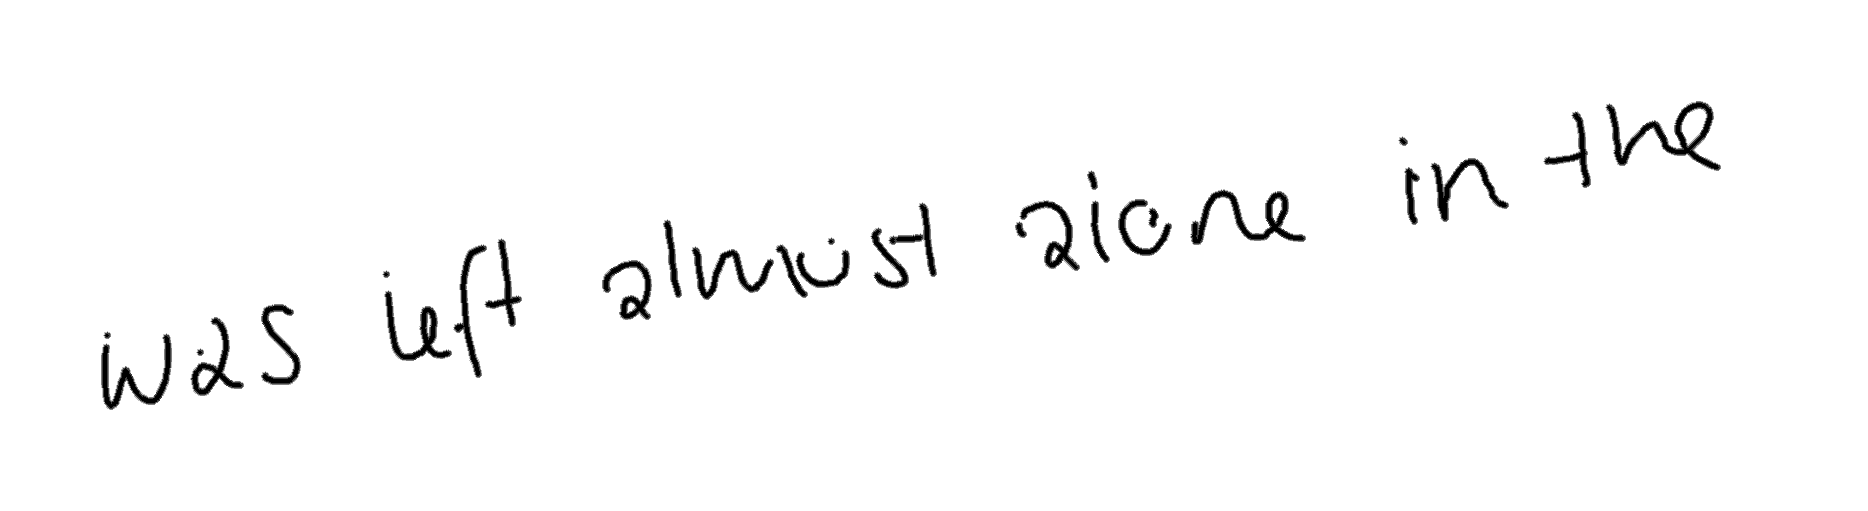 was left almost alone in the